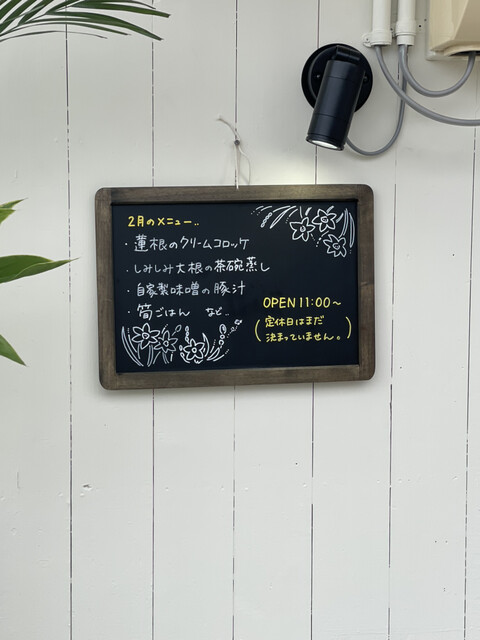 2月のメニュー..
・蓮根のクリームコロッケ
・しみしみ大根の茶碗蒸し
・自家製味噌の豚汁
・筍ごはん など..
OPEN 11:00〜
(定休日はまだ
決まっていません。)